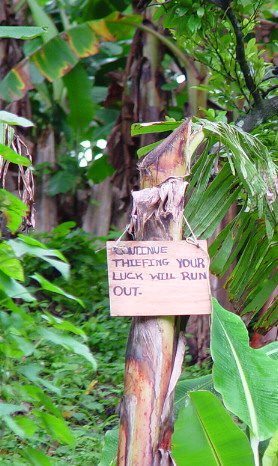 CONTINUE
THIEFING YOUR
LUCK WILL RUN
OUT.